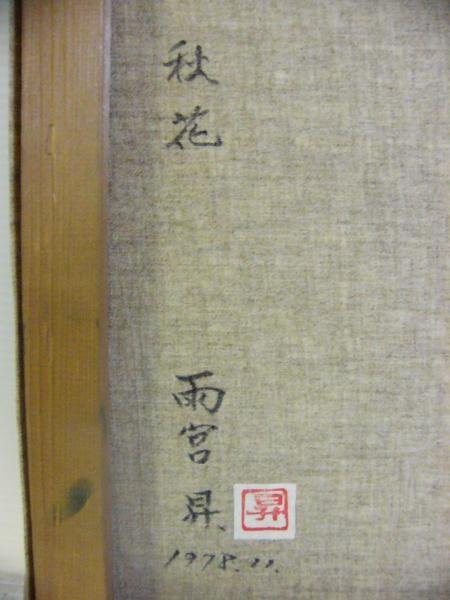 秋花
雨宮 昇
昇
1978.11.